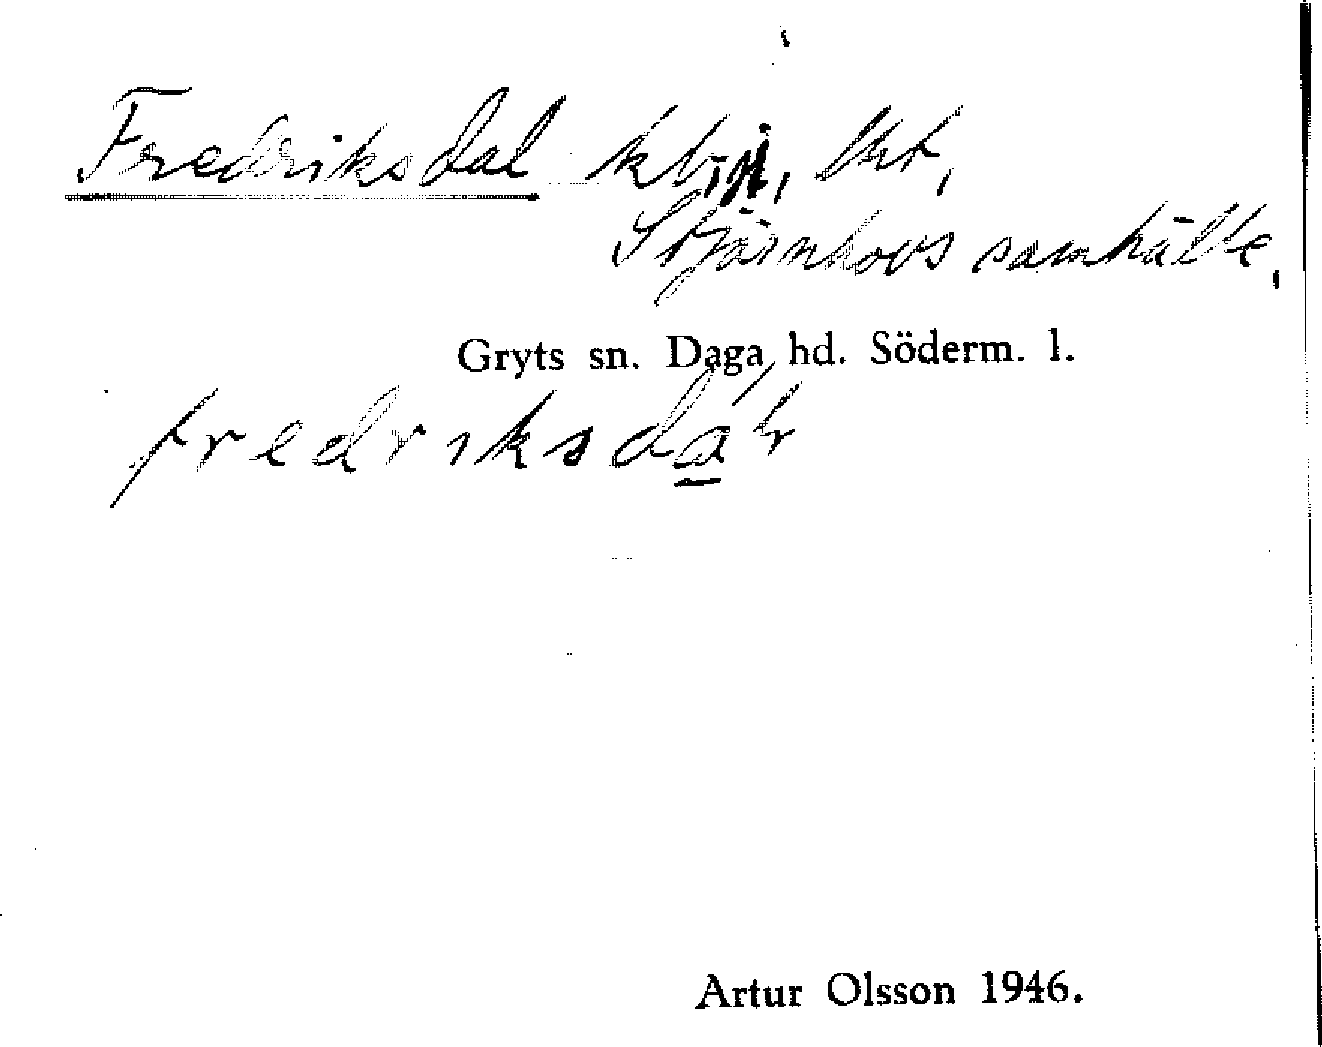 Fredriksdal
Stjärnhovs samhälle,
Gryts sn. Daga hd. Söderm. l.
fredriksdá'r
Artur Olsson 1946.